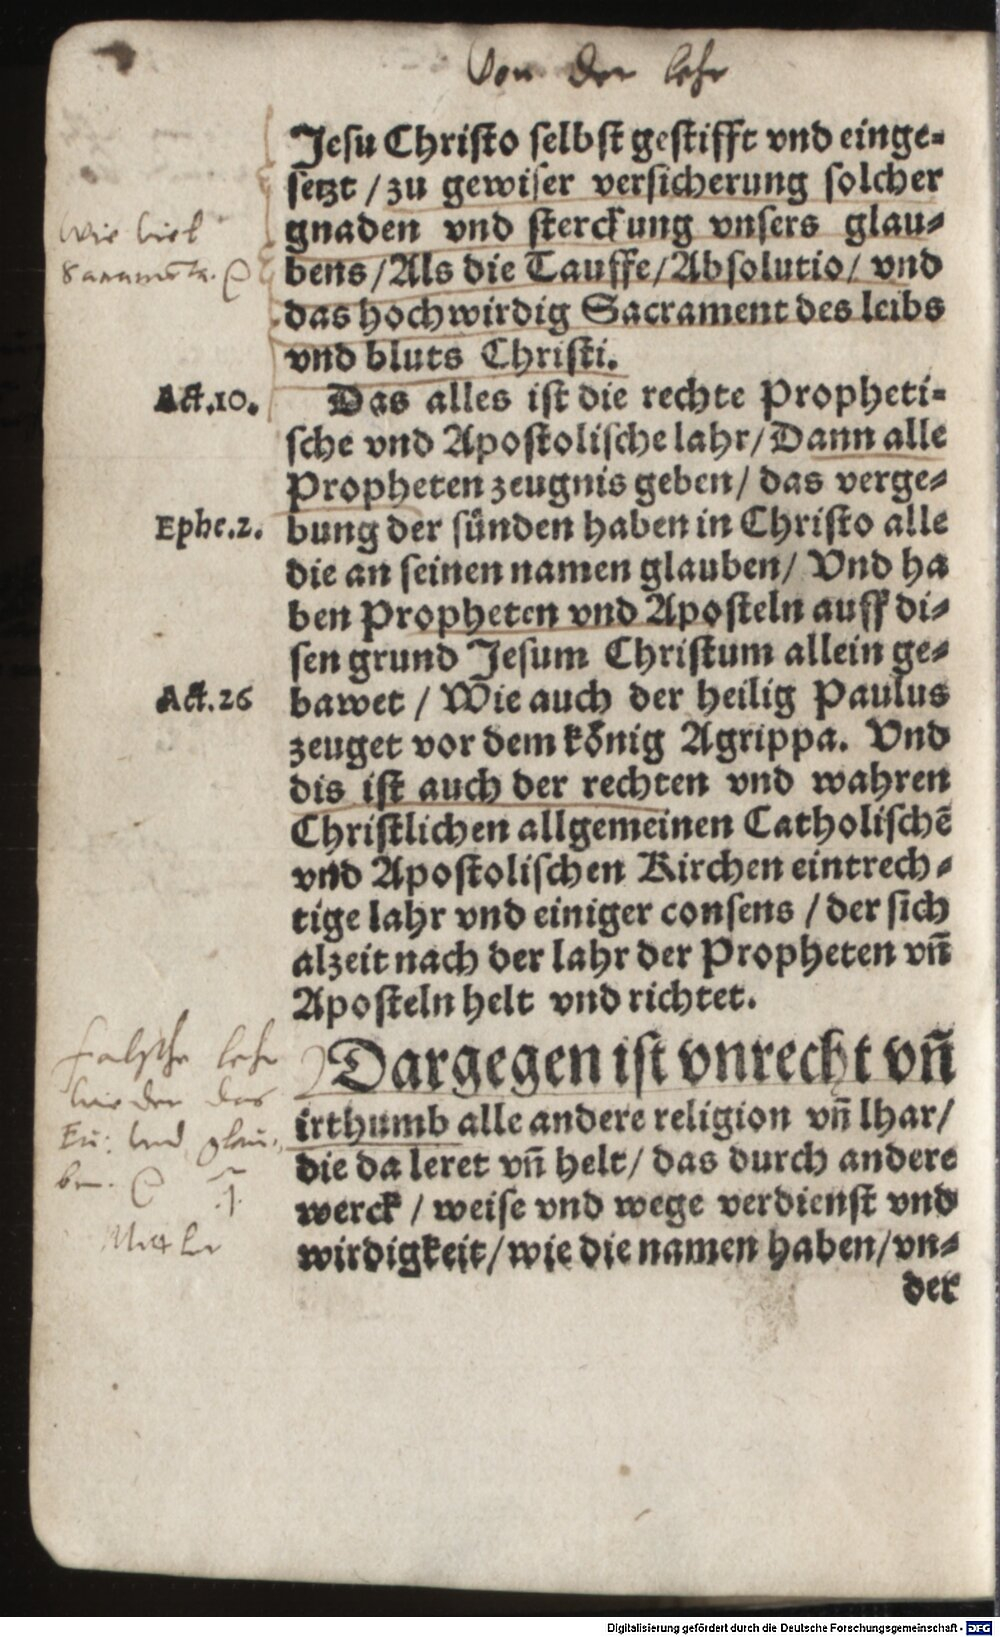 Von der lehr
Jesu Christo selbst gestifft vnd einge-
setzt / zu gewiser versicherung solcher
gnaden vnd sterckung vnsers glau-
Wie viel
bens / Als die Tauffe / Absolutio / vnd
das hochwirdig Sacrament des leibs
vnd bluts Christi.
Act.10.
Das alles ist die rechte Propheti-
sche vnd Apostolische lahr / Dann alle
Propheten zeugnis geben / das verge-
Ephe.2.
bung der sünden haben in Christo alle
die an seinen namen glauben / Vnd ha
ben Propheten vnd Aposteln auff di-
sen grund Jesum Christum allein ge-
Act.26
bawet / Wie auch der heilig Paulus
zeuget vor dem könig Agrippa. Vnd
dis ist auch der rechten vnd wahren
Christlichen allgemeinen Catholischē
vnd Apostolischen Kirchen eintrech-
tige lahr vnd einiger consens / der sich
alzeit nach der lahr der Propheten vn̄
Aposteln helt vnd richtet.
Falsche lehr
wieder das
Eu: vnd glau-
ben.
Dargegen ist vnrecht vn̄
irthumb alle andere religion vn̄ lhar /
die da leret vn̄ helt / das durch andere
werck / weise vnd wege verdienst vnd
wirdigkeit / wie die namen haben / vn-
der
Digitalisierung gefördert durch die Deutsche Forschungsgemeinschaft - DFG